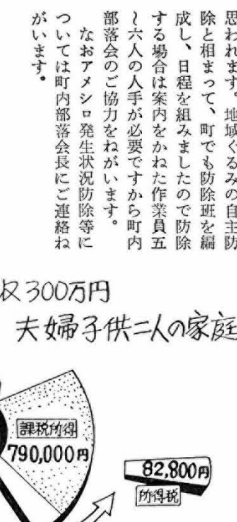 思われます。地域ぐるみの自主防
除と相まって、町でも防除班を編
成し、日程を組みましたので防除
する場合は案内をかねた作業員五
〜六人の人手が必要ですから町内
部落会のご協力をねがいます。
なおアメシロ発生状況防除等に
ついては町内部落会長にご連絡ね
がいます。
収300万円
夫婦子供二人の家庭
課税所得
790,000円
82,800円
所得税